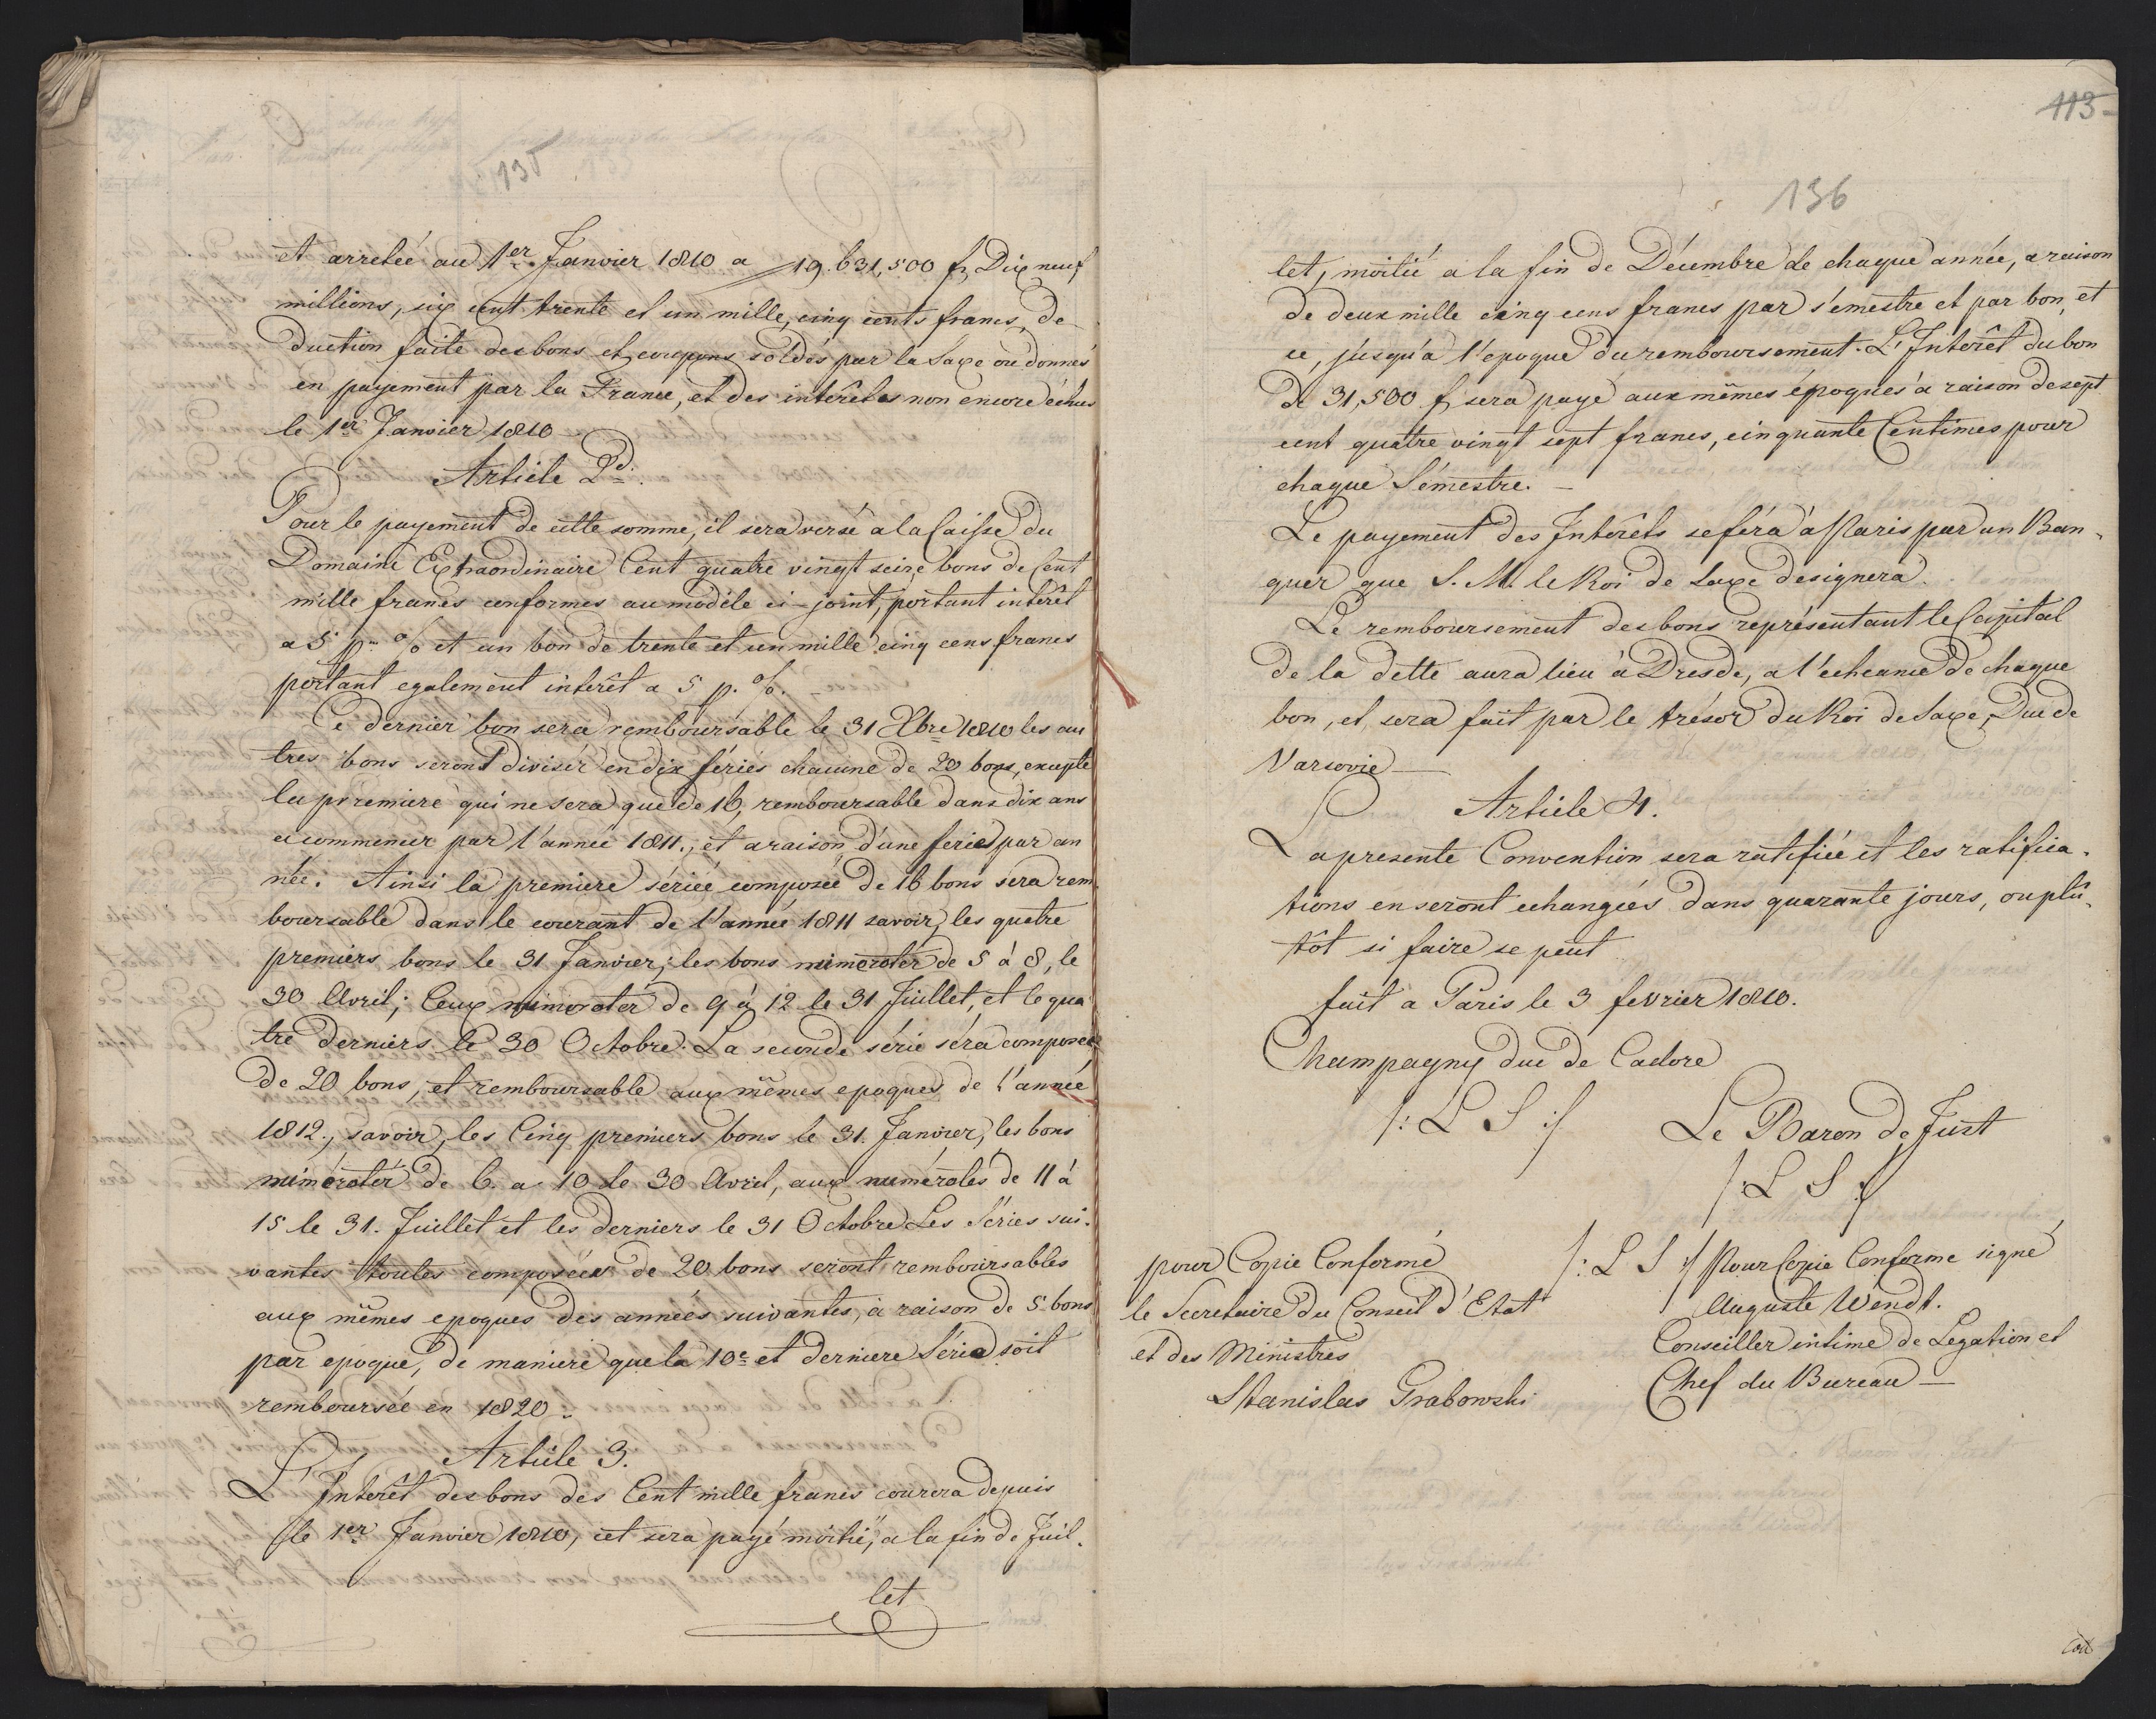 135
et arretée au 1er Janvier 1810 a 19.631,500 f, Dix neuf
millions, six cent trente et un mille, cinq cents francs, de
duction faite des bons et coupons soldés par la Saxe ou donnés
en payement par la France, et des intérêtes non encore échus
le 1er Janvier 1810
Article 2d.
Pour le payement de cette somme, il sera versé a la Caisse du
Domaine Extraordinaire Cent quatre vingt seize bons de Cent
mille francs conformes au modéle ci-joint, portant intérêt
a 5 p % et un bon de trente et un mille cinq cens francs
portant egalement intérêt a 5 p. %.
Ce dernier bon sera remboursable le 31 Xbre 1810 les au
tres bons seront divisér en dix séries chacune de 20 bons, excepté
la premiere qui ne sera que de 16, remboursable dans dix ans
a commencer par l'année 1811., et a raison d'une serie par an
née. Ainsi la premiere sériée composée de 16 bons sera rem
boursable dans le courant de l'année 1811 savoir, les quatre
premiers bons le 31 Janvier; les bons miméroter de 5 à 8, le
30 Avril; Ceux mimorotér de 9 à 12 le 31 Juillet, et le qua
tre derniers le 30 Octobre. La seconde série séra composée
de 20 bons, et remboursable aux mêmes epoques de l'année
1812., savoir, les Cinq premiers bons le 31. Janvier, les bons
mimérotér de 6. a 10 le 30 Avril, aux numérotés de 11 à
15 le 31. Juillet et les derniers le 31 Octobre Les Séries sui-
vantes toutes composées de 20 bons seront remboursables
aux mêmes epoques des années suivantes, à raison de 5 bons
par epoque, de maniere que la 10e et derniere Série soit
remboursée en 1820.
Article 3.
L'Intérêt des bons des Cent mille francs courera depuis
le 1er Janvier 1810, et sera payé moitié, a la fin de Juil-
let
113
136
let, moitié a la fin de Décembre de chaque année, a raison
de deux mille cinq cens francs par sémestre et par bon, et
ce, jusqu'à l'epoque du remboursement. L'Intérêt du bon
de 31,500 f, sera payé aux mêmes époques a raison de sept
cent quatre vingt sept francs, cinquante Centimes pour
chaque Sémestre.
Le payement des Intérêts se féra à Paris par un Ban-
quer que S. M. le Roi de Saxe designera.
Le remboursement des bons représentant le Capital
de la dette aura lieu à Dresde, a l'echeance de chaque
bon, et sera fait par le trésor du Roi de Saxe, Duc de
Varsovie
Article 4.
La presente Convention sera ratifiée et les ratifica-
tions en seront echangées dans quarante jours, ou plû-
tôt si faire se peut
fait a Paris le 3 fevrier 1810.
Champagny duc de Cadore
/: L S :/
Le Baron de Just
/: L S :/
pour Copie Conforme
le Secretaire du Conseil d'Etat
et des Ministres
Stanislas Grabowski
/: L S :/ Pour Copie Conforme signé
Auguste Wendt.
Conseiller intime de Legation et
Chef du Bureau